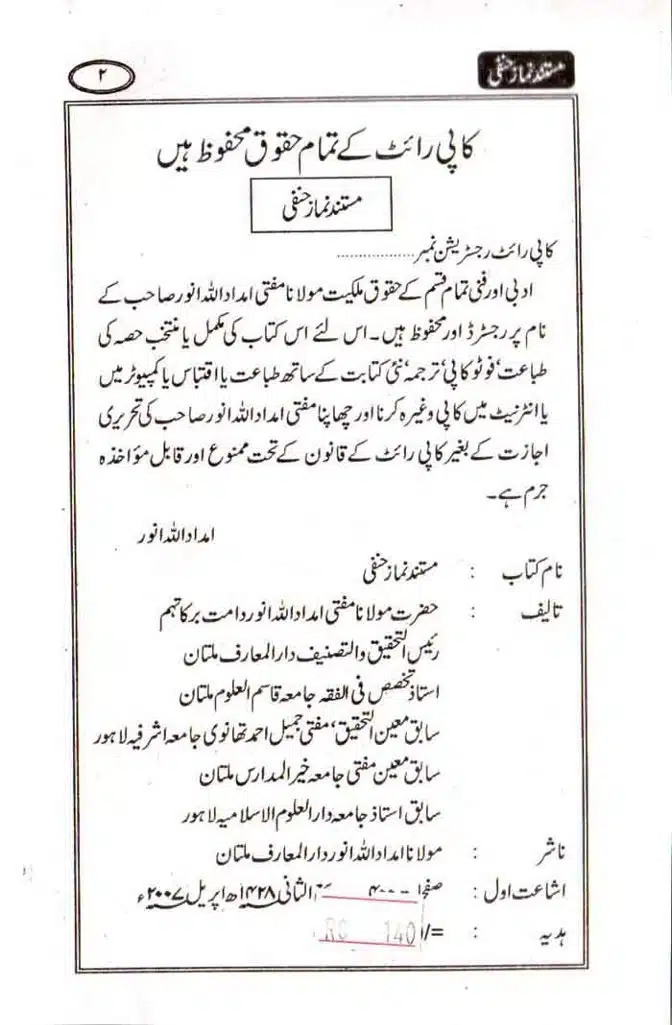 مستند نماز حنفی
۲
کاپی رائٹ کے تمام حقوق محفوظ ہیں
مستند نماز حنفی
کاپی رائٹ رجسٹریشن نمبر ................
ادبی اور فنی تمام قسم کے حقوق ملکیت مولانا مفتی امداد اللہ انور صاحب کے
نام پر رجسٹرڈ اور محفوظ ہیں۔ اس لئے اس کتاب کی مکمل یا منتخب حصہ کی
طباعت‘ فوٹو کاپی‘ ترجمہ‘ نئی کتابت کے ساتھ طباعت یا اقتباس یا کمپیوٹر میں
یا انٹرنیٹ میں کاپی وغیرہ کرنا اور چھاپنا مفتی امداد اللہ انور صاحب کی تحریری
اجازت کے بغیر کاپی رائٹ کے قانون کے تحت ممنوع اور قابل مؤاخذہ
جرم ہے۔
امداد اللہ انور
نام کتاب : مستند نماز حنفی
تالیف : حضرت مولانا مفتی امداد اللہ انور دامت برکاتہم
رئیس التحقیق والتصنیف دارالمعارف ملتان
استاذ تخصص فی الفقہ جامعہ قاسم العلوم ملتان
سابق معین التحقیق‘ مفتی جمیل احمد تھانوی جامعہ اشرفیہ لاہور
سابق معین مفتی جامعہ خیر المدارس ملتان
سابق استاذ جامعہ دارالعلوم الاسلامیہ لاہور
ناشر : مولانا امداد اللہ انور دارالمعارف ملتان
اشاعت اول : الثانی ۱۴۲۸ھ اپریل ۲۰۰۷ء
ہدیہ : =/ RS 140